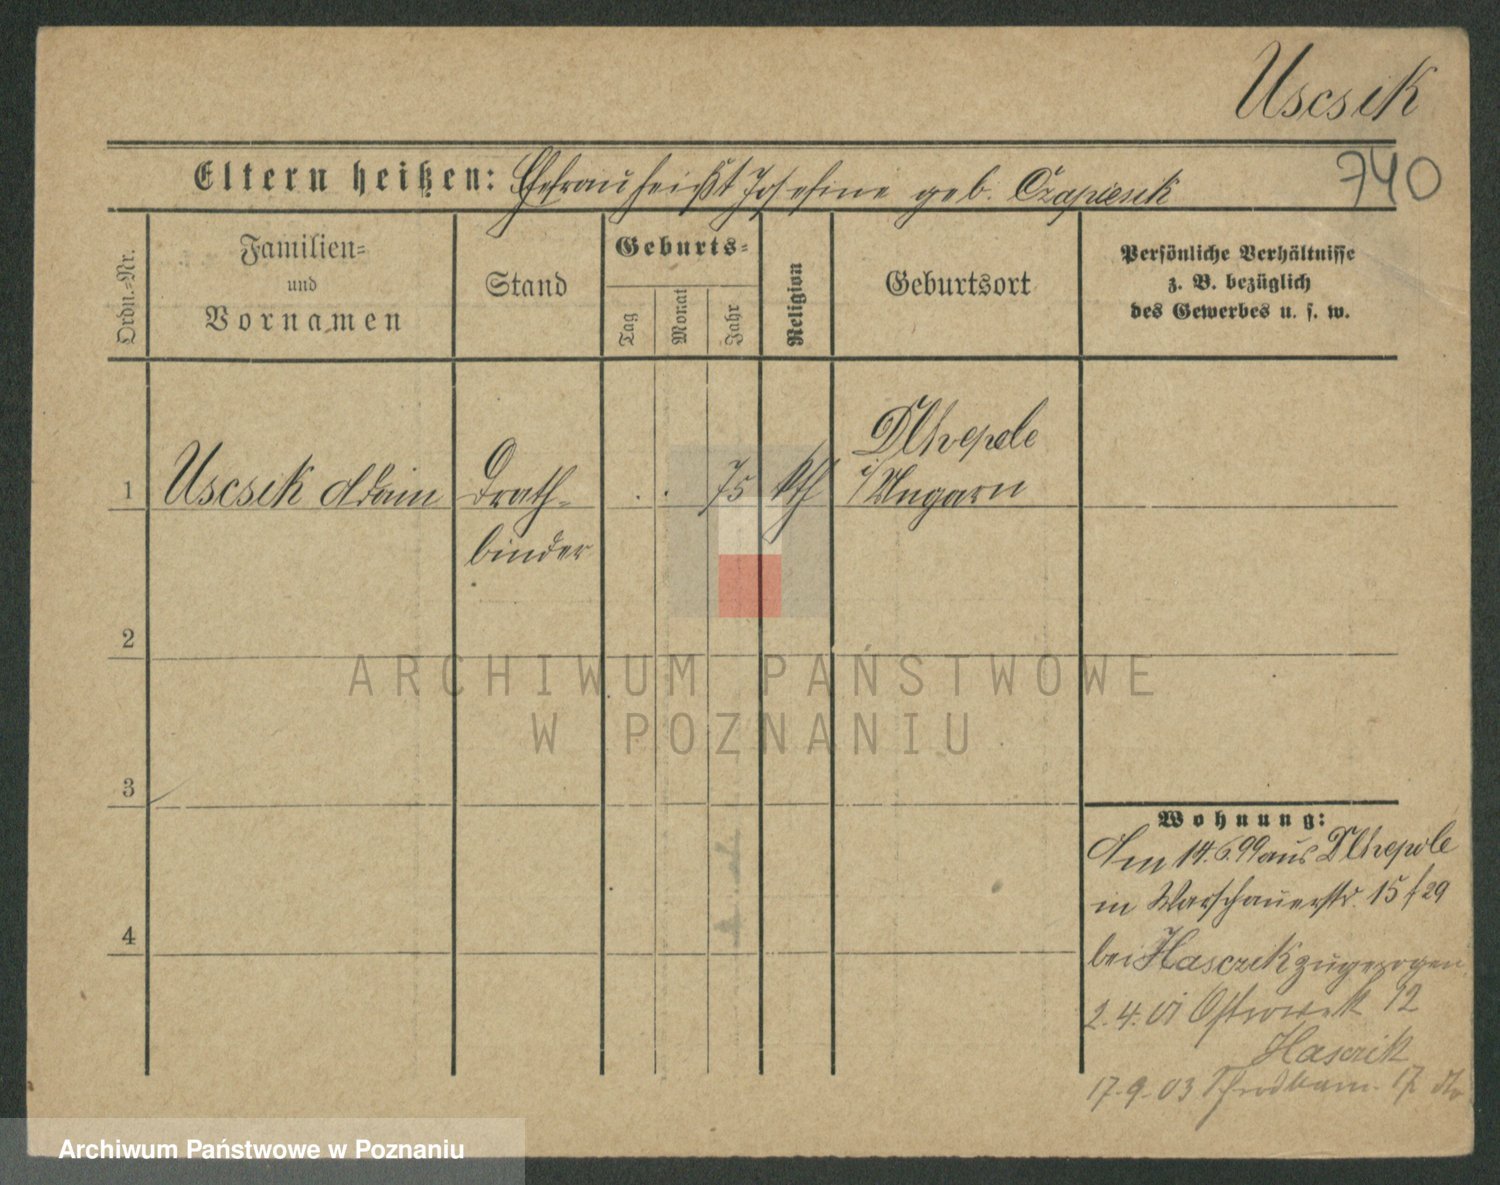 Uscsik
740
Eltern heißen: Ehefrau heißt Josefine geb. Czapiesik
Ordn.-Nr.
Familien-
und
Vornamen
Stand
Geburts-
Tag
Monat
Jahr
Religion
Geburtsort
Persönliche Verhältnisse
z. B. bezüglich
des Gewerbes u. s. w.
1
Uscsik Adam
Drath-
binder
. . 75
kth
Dlhepole
i/Ungarn
2
3
4
Wohnung:
Am 14.6.99 aus Dlhepole
in Warschauerstr. 15
bei Hasczik zugezogen
2.4.01 Ostrowek 12
Hasczik
17.9.03 17
ARCHIWUM PAŃSTWOWE
W POZNANIU
Archiwum Państwowe w Poznaniu